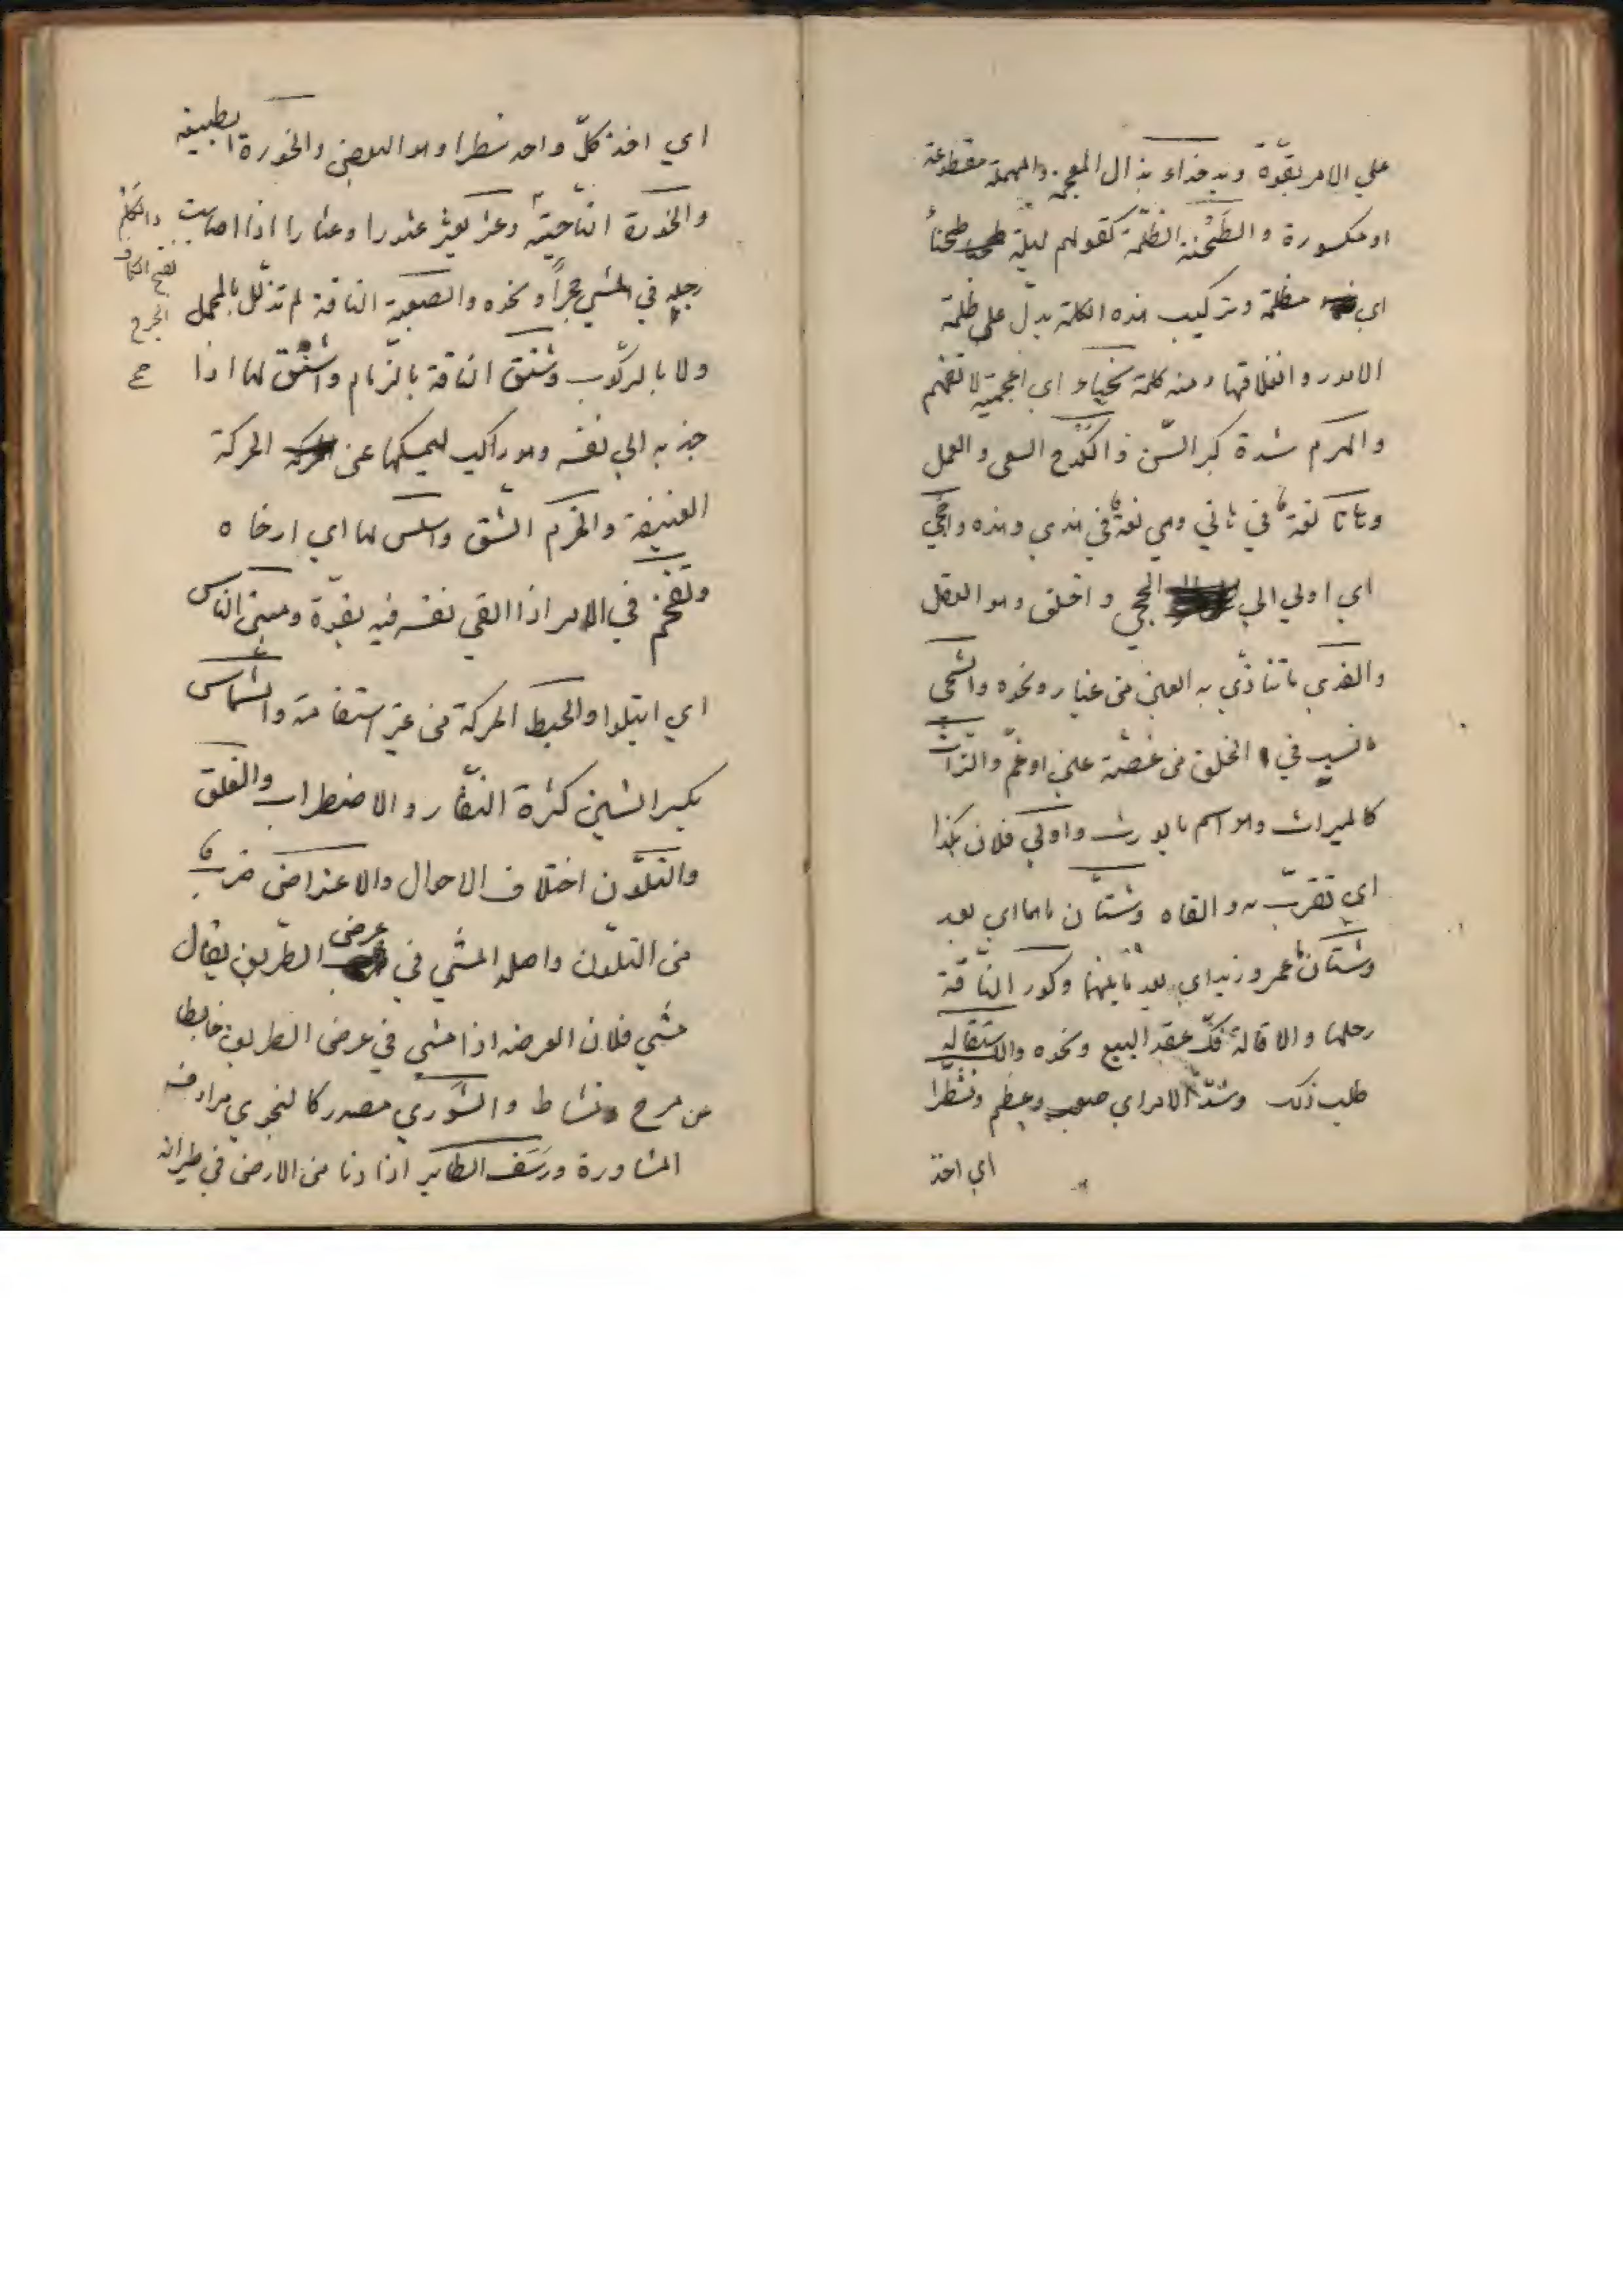 علي الامر بقوّة ويد جذاء بذال المعجمة والمهملة مقطوعة
او مكسورة والطَّخْيَة الظّلمة كقولهم ليلة طخياءُ
اي مظلمة وتركيب هذه الكلمة يدلّ علي ظلمة
الامور وانغلاقها ومنه كلمة طخياء اي اعجمية لا تفهم
والهرم شدة كبر السّن والكدح السعي والعمل
وهاتا لغة في هاتي وهي لغة في هذي وهذه واحجي
اي اولي الي الحجي واخلق وهو العقل
والقذي ما تتاذّي به العين من غبار ونحوه والشجي
ما نسب في الحلق من غصّة غبن او غمّ والتراث
كالميراث وهو اسم ما يورث وادلي فلان بكذا
اي تقرّب به والقاه وشتّان ما هما اي بعد
وشتّان ما عمرو وزيد اي بعد ما بينهما وكور النّاقة
رحلها والاقالة فكّ عقد البيع ونحوه والاستقالة
طلب ذلك وشدّ الامر اي صعب وعظم وتشطّرا
اي اخذ
اي اخذ كلّ واحد شطرا وهو البعض والحوزة الطبيعة
والحوزة النّاحية وعثر يعثر عثورا وعثارا اذا اصابت
والكَلْمُ
بفتح الكاف
الجرح
رجله في المشي حجراً ونحوه والصعبة الناقة لم تذلّل بالمحمل
ولا بالركوب وشنق الناقة بالزّمام واشنق لها اذا
جذبه الي نفسه وهو راكب ليمسكها عن الحركة
العنيفة والخرم الشّق واسلس لها اي ارخاه
وتقحّم في الامر اذا القي نفسه فيه بقوّة ومني النّاس
اي ابتلوا والخبط الحركة من غير استقامة والشّماس
بكسر الشين كثرة النّفار والاضطراب والقلق
والتّلوّن اختلاف الاحوال والاعتراض ضرب
من التلوّن واصله المشي في عرض الطّريق يقال
مشي فلان العرضه اذا مشي في عرض الطريق خابطا
من مرح ونشاط والشّوري مصدر كالنجوي مرادفه
المشاورة ورَسَف الطاير اذا دنا من الارض في طيرانه